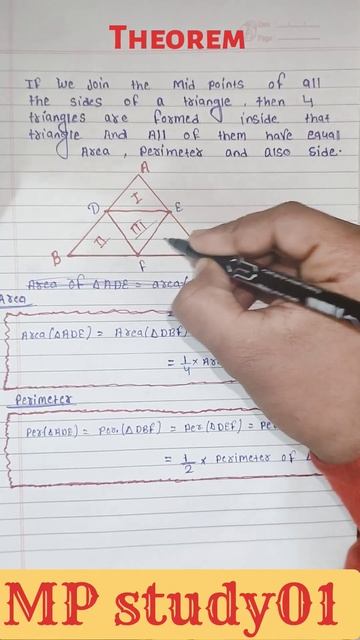 THEOREM
If We Join the Mid points of all
the sides of a triangle, then 4
triangles are formed inside that
triangle And All of them have equal
Area, Perimeter and also side.
A
I
D E
II III
B F
Area of △ADE = area(
Area
Area(△ADE) = Area(△DBF)
= 1/4 × Ar
Perimeter
Per(△ADE) = Per.(△DBF) = Per(△DEF) = Pe
= 1/2 × Perimeter of △
MP study01